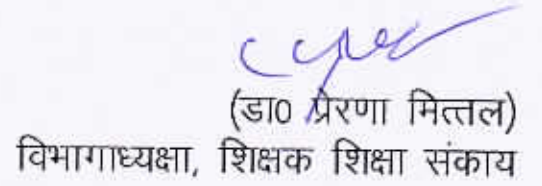 (डा0 प्रेरणा मित्तल)
विभागाध्यक्षा, शिक्षक शिक्षा संकाय